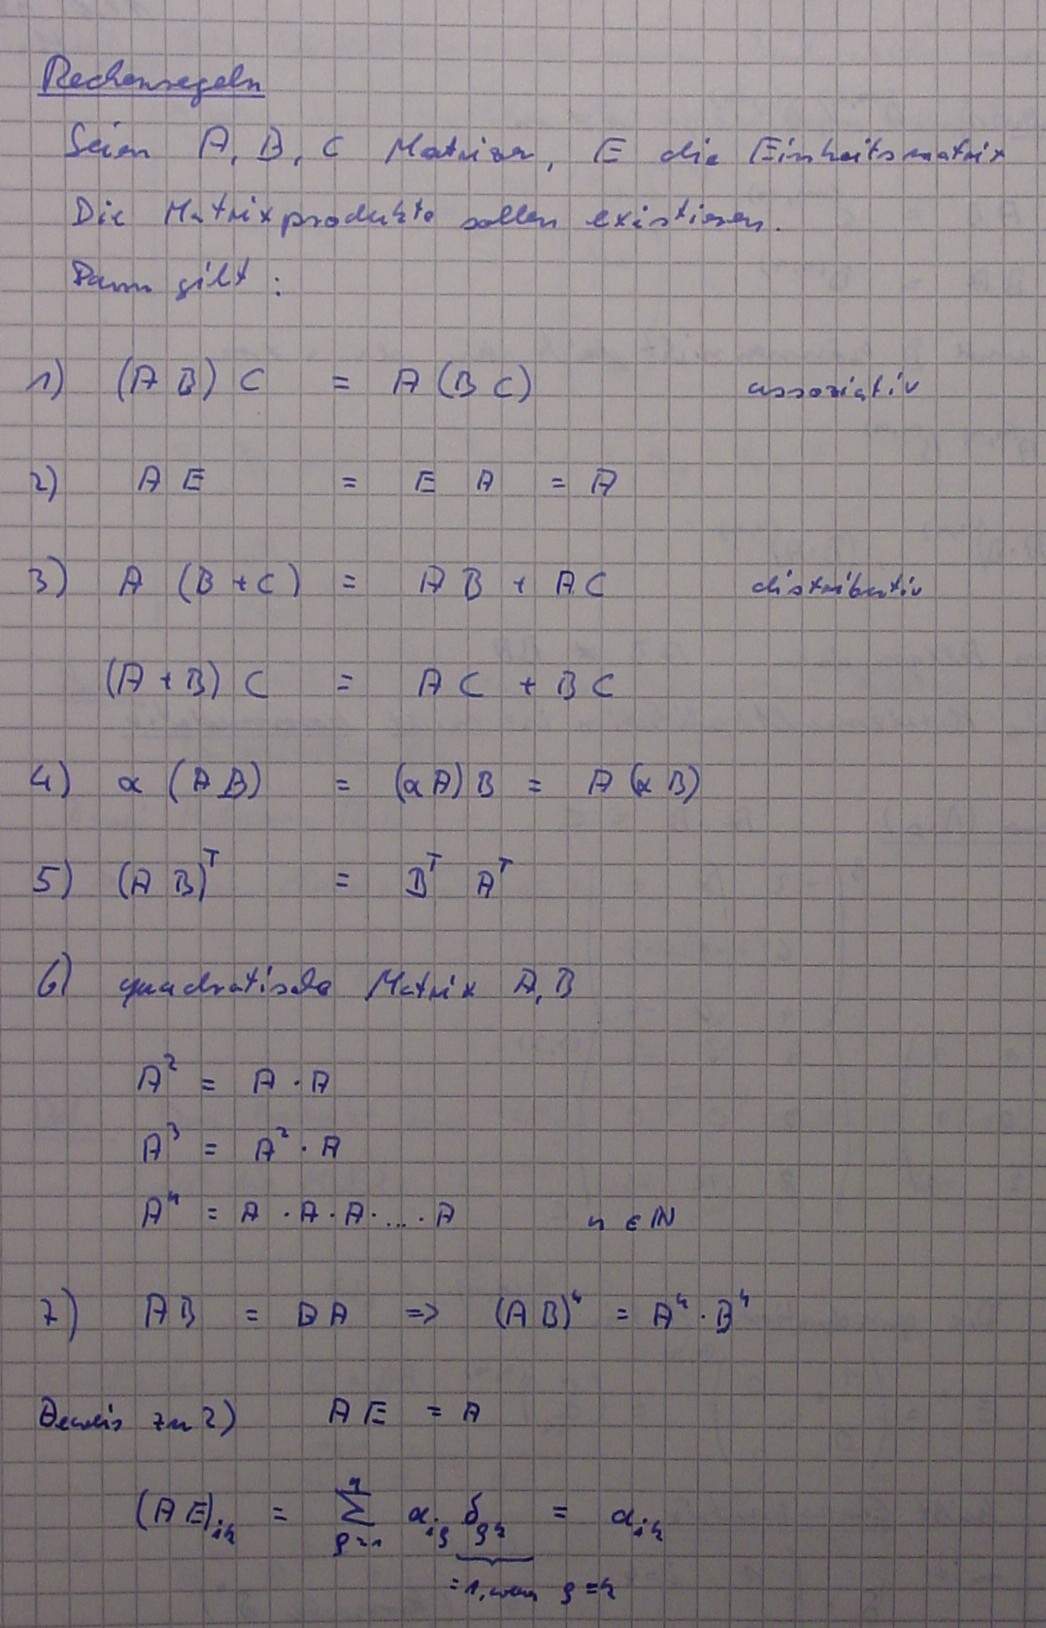 Rechenregeln
Seien A, B, C Matrizen, E die Einheitsmatrix
Die Matrixprodukte sollen existieren.
Dann gilt :
1) (A B) C = A (B C) assoziativ
2) A E = E A = A
3) A (B + C) = A B + A C distributiv
(A + B) C = A C + B C
4) α (A B) = (α A) B = A (α B)
5) (A B)ᵀ = Bᵀ Aᵀ
6) quadratische Matrix A, B
A² = A · A
A³ = A² · A
Aⁿ = A · A · A · ... · A n ∈ ℕ
7) A B = B A => (A B)ⁿ = Aⁿ · Bⁿ
Beweis zu 2) A E = A
(A E)ᵢₖ = ∑ α_iρ δ_ρk = α_ik
ρ=1
= 1, wenn ρ = k